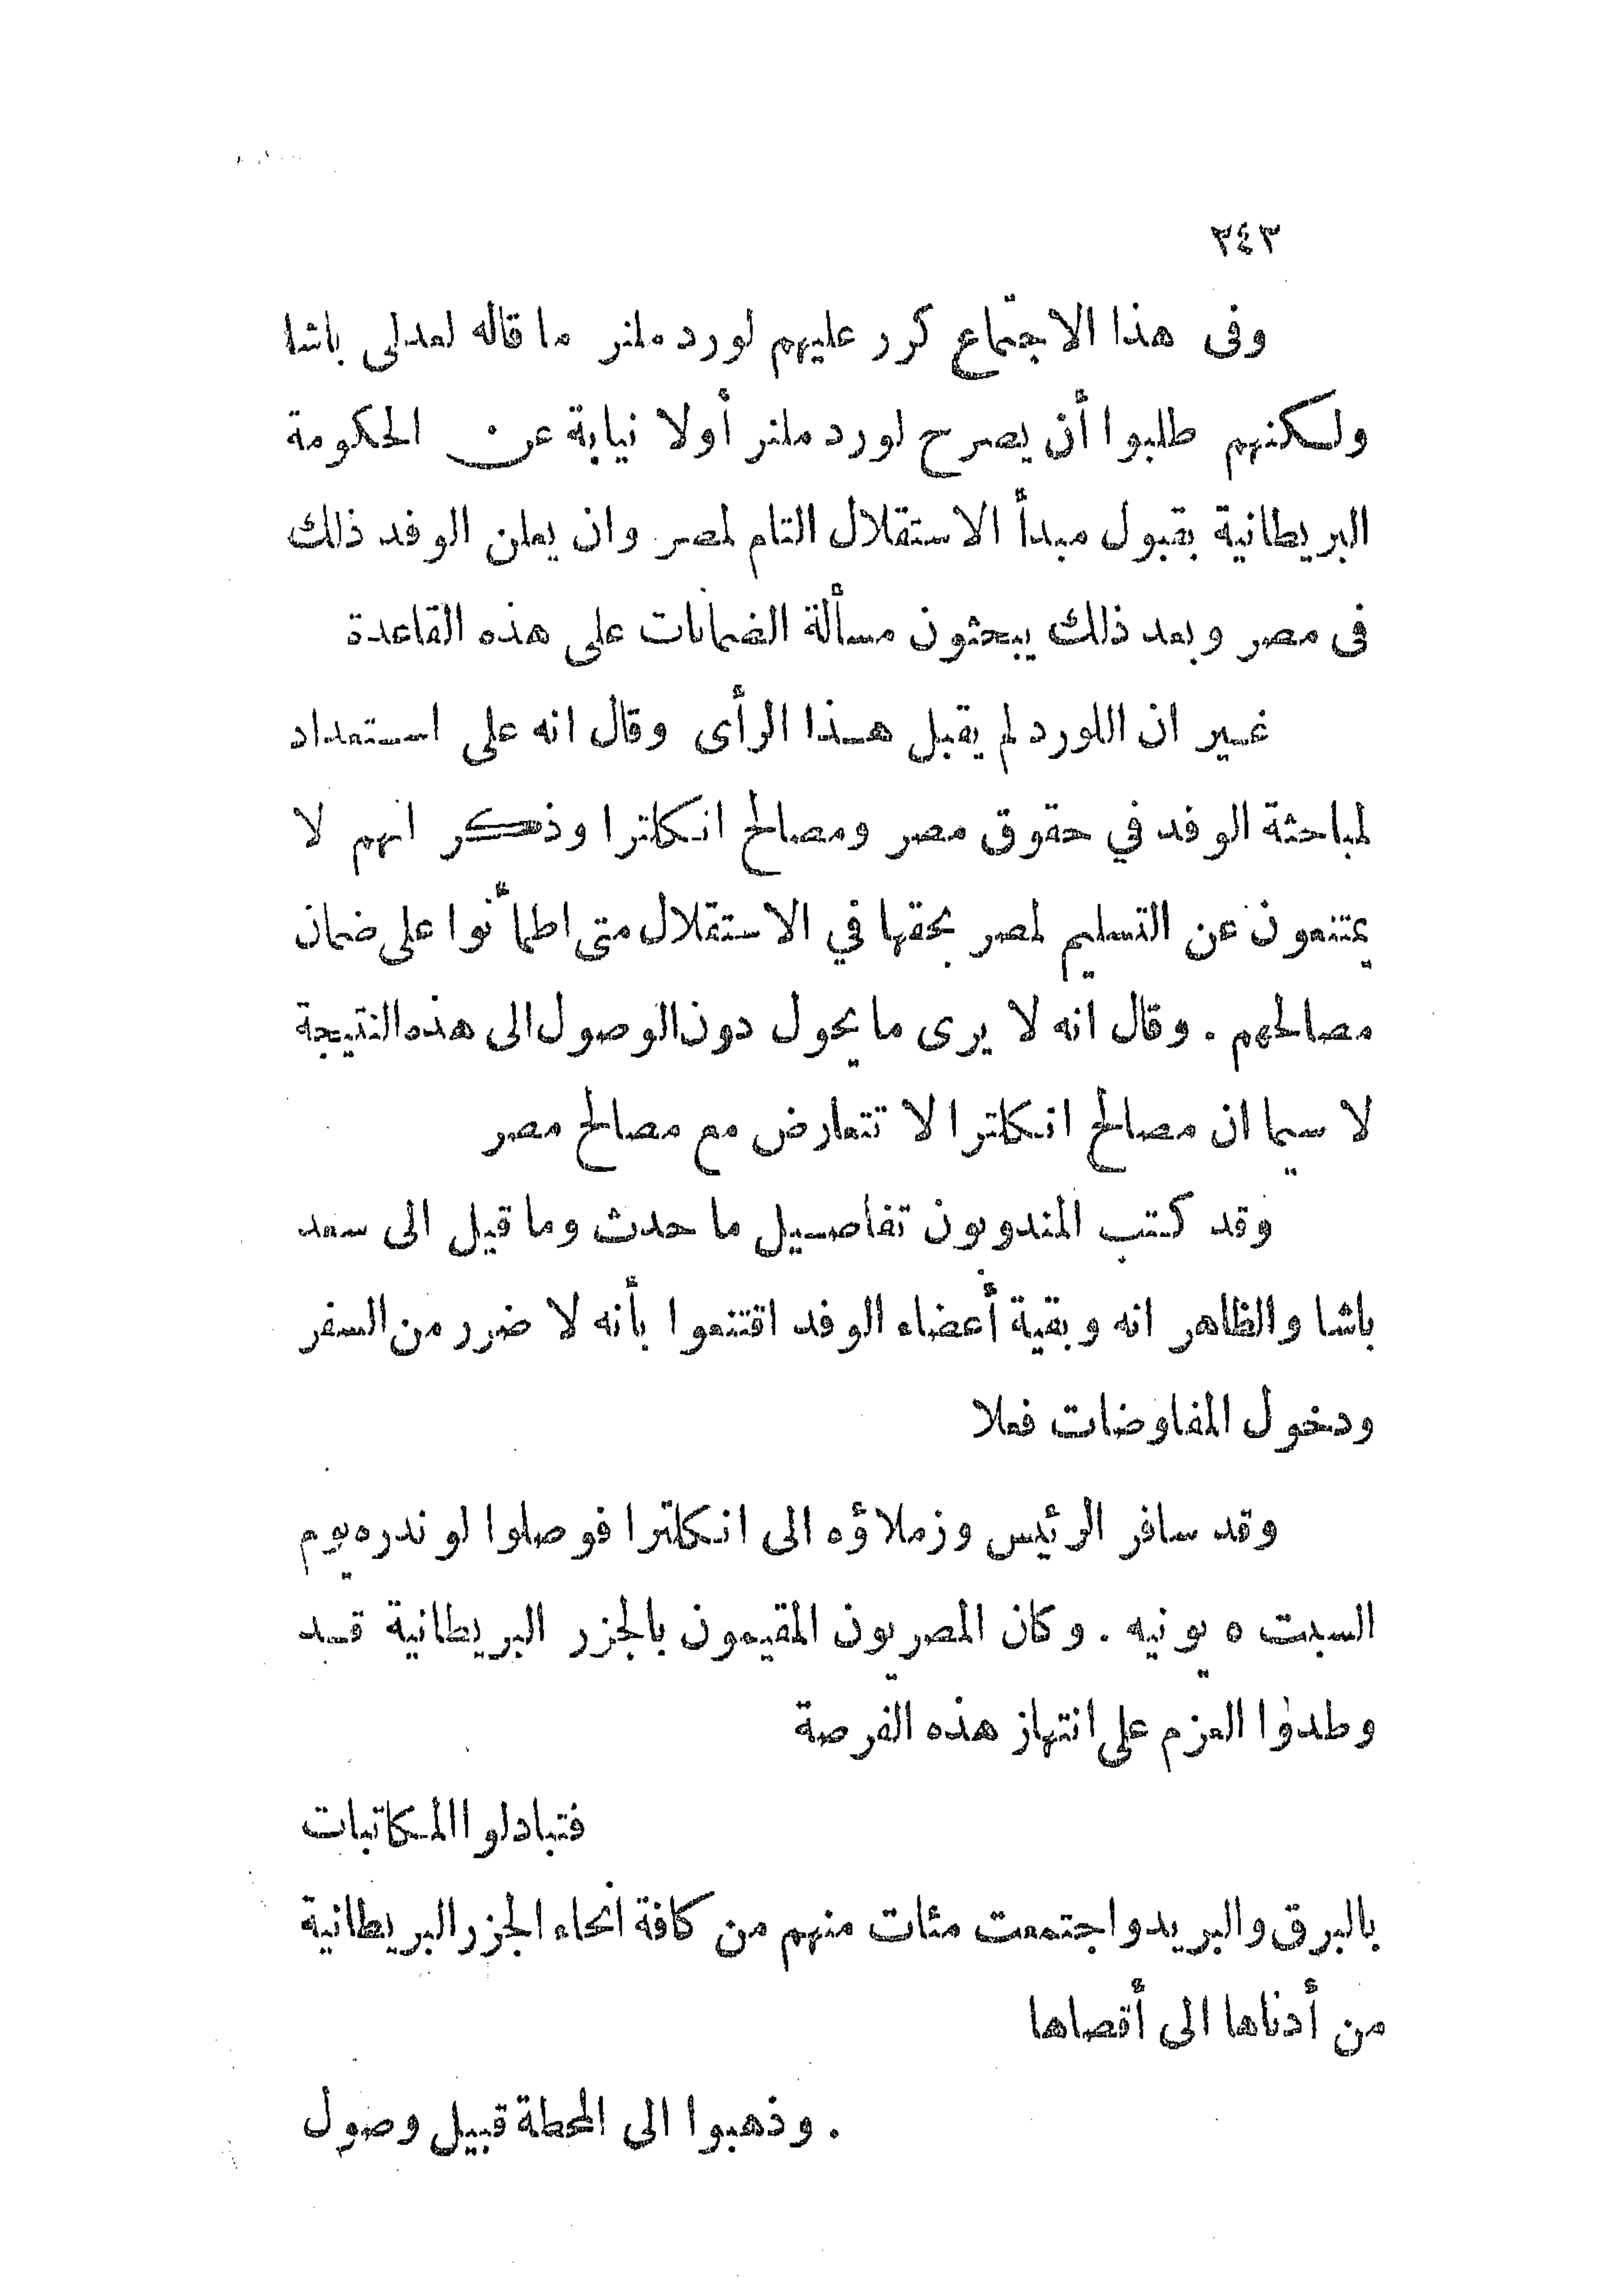 ٣٤٣
وفى هذا الاجتماع كرر عليهم لورد ملنر ما قاله لعدلى باشا
ولكنهم طلبوا أن يصرح لورد ملنر أولا نيابة عن الحكومة
البريطانية بقبول مبدأ الاستقلال التام لمصر وان يعلن الوفد ذلك
فى مصر وبعد ذلك يبحثون مسألة الضمانات على هذه القاعدة
غير ان اللورد لم يقبل هذا الرأى وقال انه على استعداد
لمباحثة الوفد في حقوق مصر ومصالح انكلترا وذكر انهم لا
يمتنعون عن التسليم لمصر بحقها في الاستقلال متى اطمأنوا على ضمان
مصالحهم . وقال انه لا يرى ما يحول دون الوصول الى هذه النتيجة
لا سيما ان مصالح انكلترا لا تتعارض مع مصالح مصر
وقد كتب المندوبون تفاصيل ما حدث وما قيل الى سعد
باشا والظاهر انه وبقية أعضاء الوفد اقتنعوا بأنه لا ضرر من السفر
ودخول المفاوضات فعلا
وقد سافر الرئيس وزملاؤه الى انكلترا فوصلوا لوندره يوم
السبت ٥ يونيه . وكان المصريون المقيمون بالجزر البريطانية قد
وطدوا العزم على انتهاز هذه الفرصة
فتبادلوا المكاتبات
بالبرق والبريد واجتمعت مئات منهم من كافة انحاء الجزر البريطانية
من أدناها الى أقصاها
. وذهبوا الى المحطة قبيل وصول